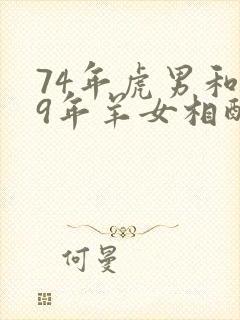 74年虎男和
9年羊女相配
何曼